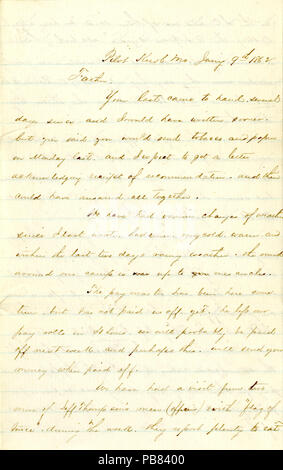 Pilot Knob Mo. Jany 9th 1862
Father,
Your last came to hand several
days since and I would have written sooner
but you said you would send tobacco and papers
on Monday last. and I expect to get a letter
acknowledging receipt of recommendation. and then
could have answered all together.
We have had various changes of weather
since I last wrote. had some cold, warm and
within the last two days rainy weather. the mud
around our camp is up to
The paymaster has been here some
time but has not paid us off yet. he left our
pay rolls in St Louis. we will probably be paid
off next week and perhaps this. will send you
money when paid off.
We have had a visit from two
more of Jeff Thompson's men (officers) with "Flag of
truce" during the week. they report plenty to eat
alamy
alamy
Image ID: PB8400
www.alamy.com